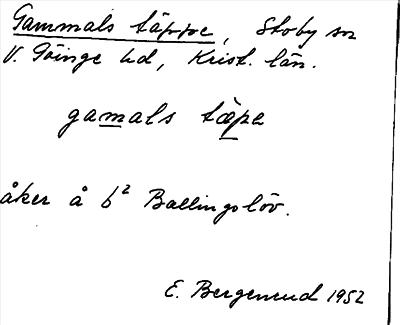 Gammals täppe, Stoby sn
V. Göinge hd, Krist. län.
gamals täpe
åker å b² Ballingslöv.
E. Bergenrud 1952